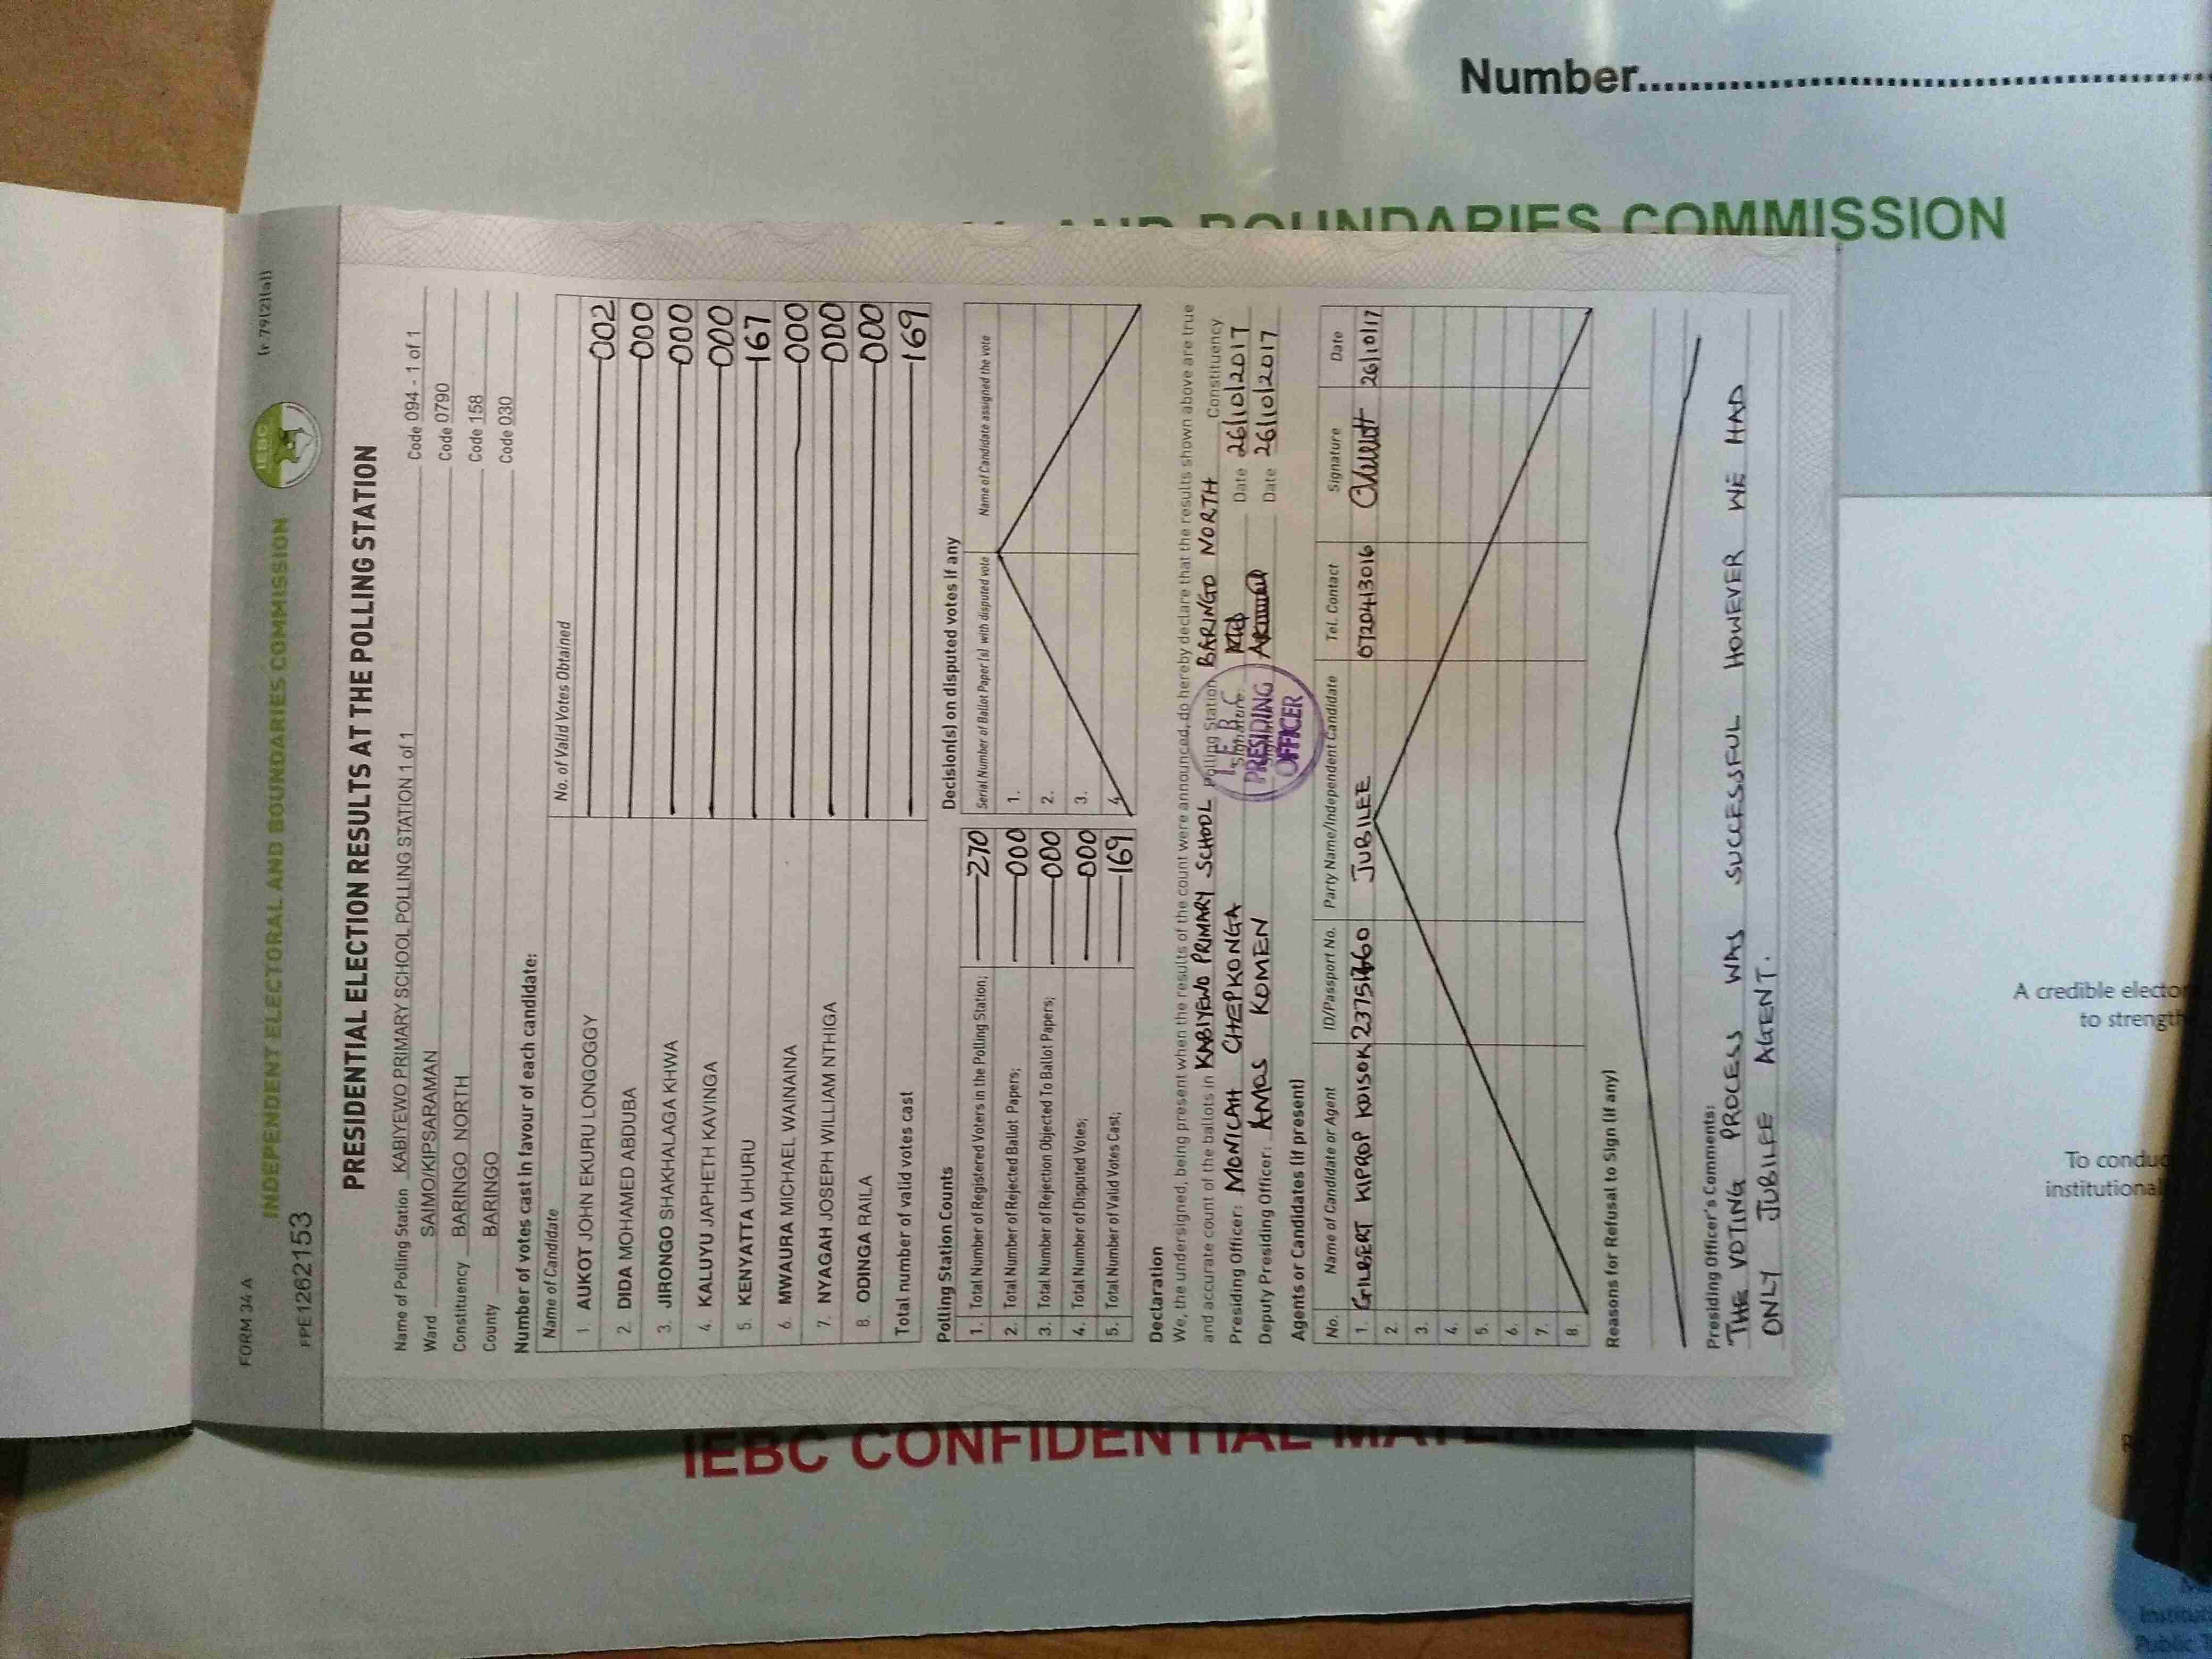 Number
AND BOUNDARIES COMMISSION
FORM 34 A
(r.79(2)(a))
INDEPENDENT ELECTORAL AND BOUNDARIES COMMISSION
IEBC
FPE1262153
PRESIDENTIAL ELECTION RESULTS AT THE POLLING STATION
Name of Polling Station KABIYEWO PRIMARY SCHOOL POLLING STATION 1 of 1 Code 094 - 1 of 1
Ward SAIMO/KIPSARAMAN Code 0790
Constituency BARINGO NORTH Code 158
County BARINGO Code 030
Number of votes cast in favour of each candidate:
Name of Candidate No. of Valid Votes Obtained
1. AUKOT JOHN EKURU LONGOGGY 002
2. DIDA MOHAMED ABDUBA 000
3. JIRONGO SHAKHALAGA KHWA 000
4. KALUYU JAPHETH KAVINGA 000
5. KENYATTA UHURU 167
6. MWAURA MICHAEL WAINAINA 000
7. NYAGAH JOSEPH WILLIAM NTHIGA 000
8. ODINGA RAILA 000
Total number of valid votes cast 169
Polling Station Counts
1. Total Number of Registered Voters in the Polling Station; 270
2. Total Number of Rejected Ballot Papers; 000
3. Total Number of Rejection Objected To Ballot Papers; 000
4. Total Number of Disputed Votes; 000
5. Total Number of Valid Votes Cast; 169
Decision(s) on disputed votes if any
Serial Number of Ballot Paper(s) with disputed vote Name of Candidate assigned the vote
1.
2.
3.
4.
Declaration
We, the undersigned, being present when the results of the count were announced, do hereby declare that the results shown above are true
and accurate count of the ballots in KABIYEWO PRIMARY SCHOOL Polling Station BARINGO NORTH Constituency
Presiding Officer: MONICAH CHEPKONGA Signature: Date 26/10/2017
Deputy Presiding Officer: AMOS KOMEN Date 26/10/2017
I.E.B.C
PRESIDING
OFFICER
Agents or Candidates (if present)
No. Name of Candidate or Agent ID/Passport No. Party Name/Independent Candidate Tel. Contact Signature Date
1. GILBERT KIPROP KOISOK JUBILEE 0720413016 26/10/17
2.
3.
4.
5.
6.
7.
8.
Reasons for Refusal to Sign (if any)
Presiding Officer's Comments:
THE VOTING PROCESS WAS SUCCESSFUL HOWEVER WE HAD
ONLY JUBILEE AGENT.
IEBC CONFIDENTIAL
A credible
to
To
institutional